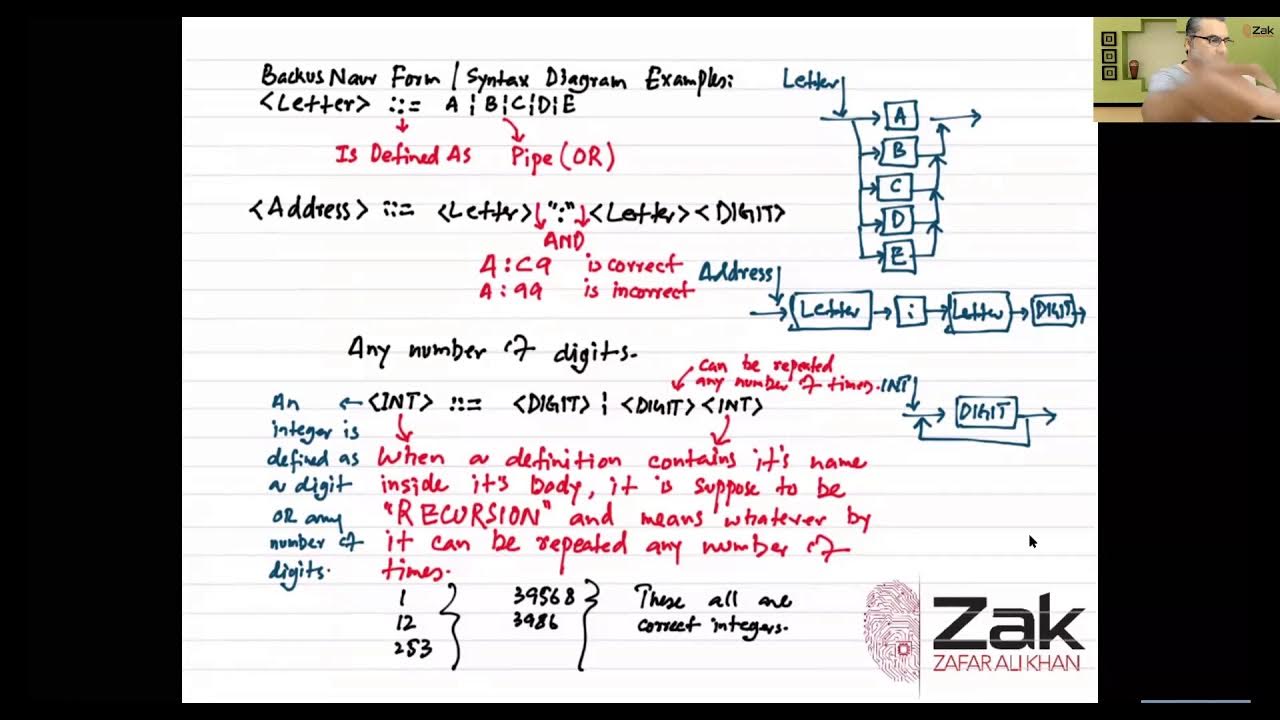 Backus Naur Form / Syntax Diagram Examples:
<Letter> ::= A | B | C | D | E
Is Defined As Pipe (OR)
Letter
A
B
C
D
E
<Address> ::= <Letter> ":" <Letter> <DIGIT>
AND
A : C9 is correct
A : 99 is incorrect
Address
Letter : Letter DIGIT
Any number of digits.
can be repeated
any number of times.
<INT> ::= <DIGIT> | <DIGIT> <INT>
INT
DIGIT
An
integer is
defined as
a digit
OR any
number of
digits.
When a definition contains it's name
inside it's body, it is suppose to be
"RECURSION" and means whatever by
it can be repeated any number of
times.
1
12
253
39568
3986
These all are
correct integers.
Zak
ZAFAR ALI KHAN
Zak